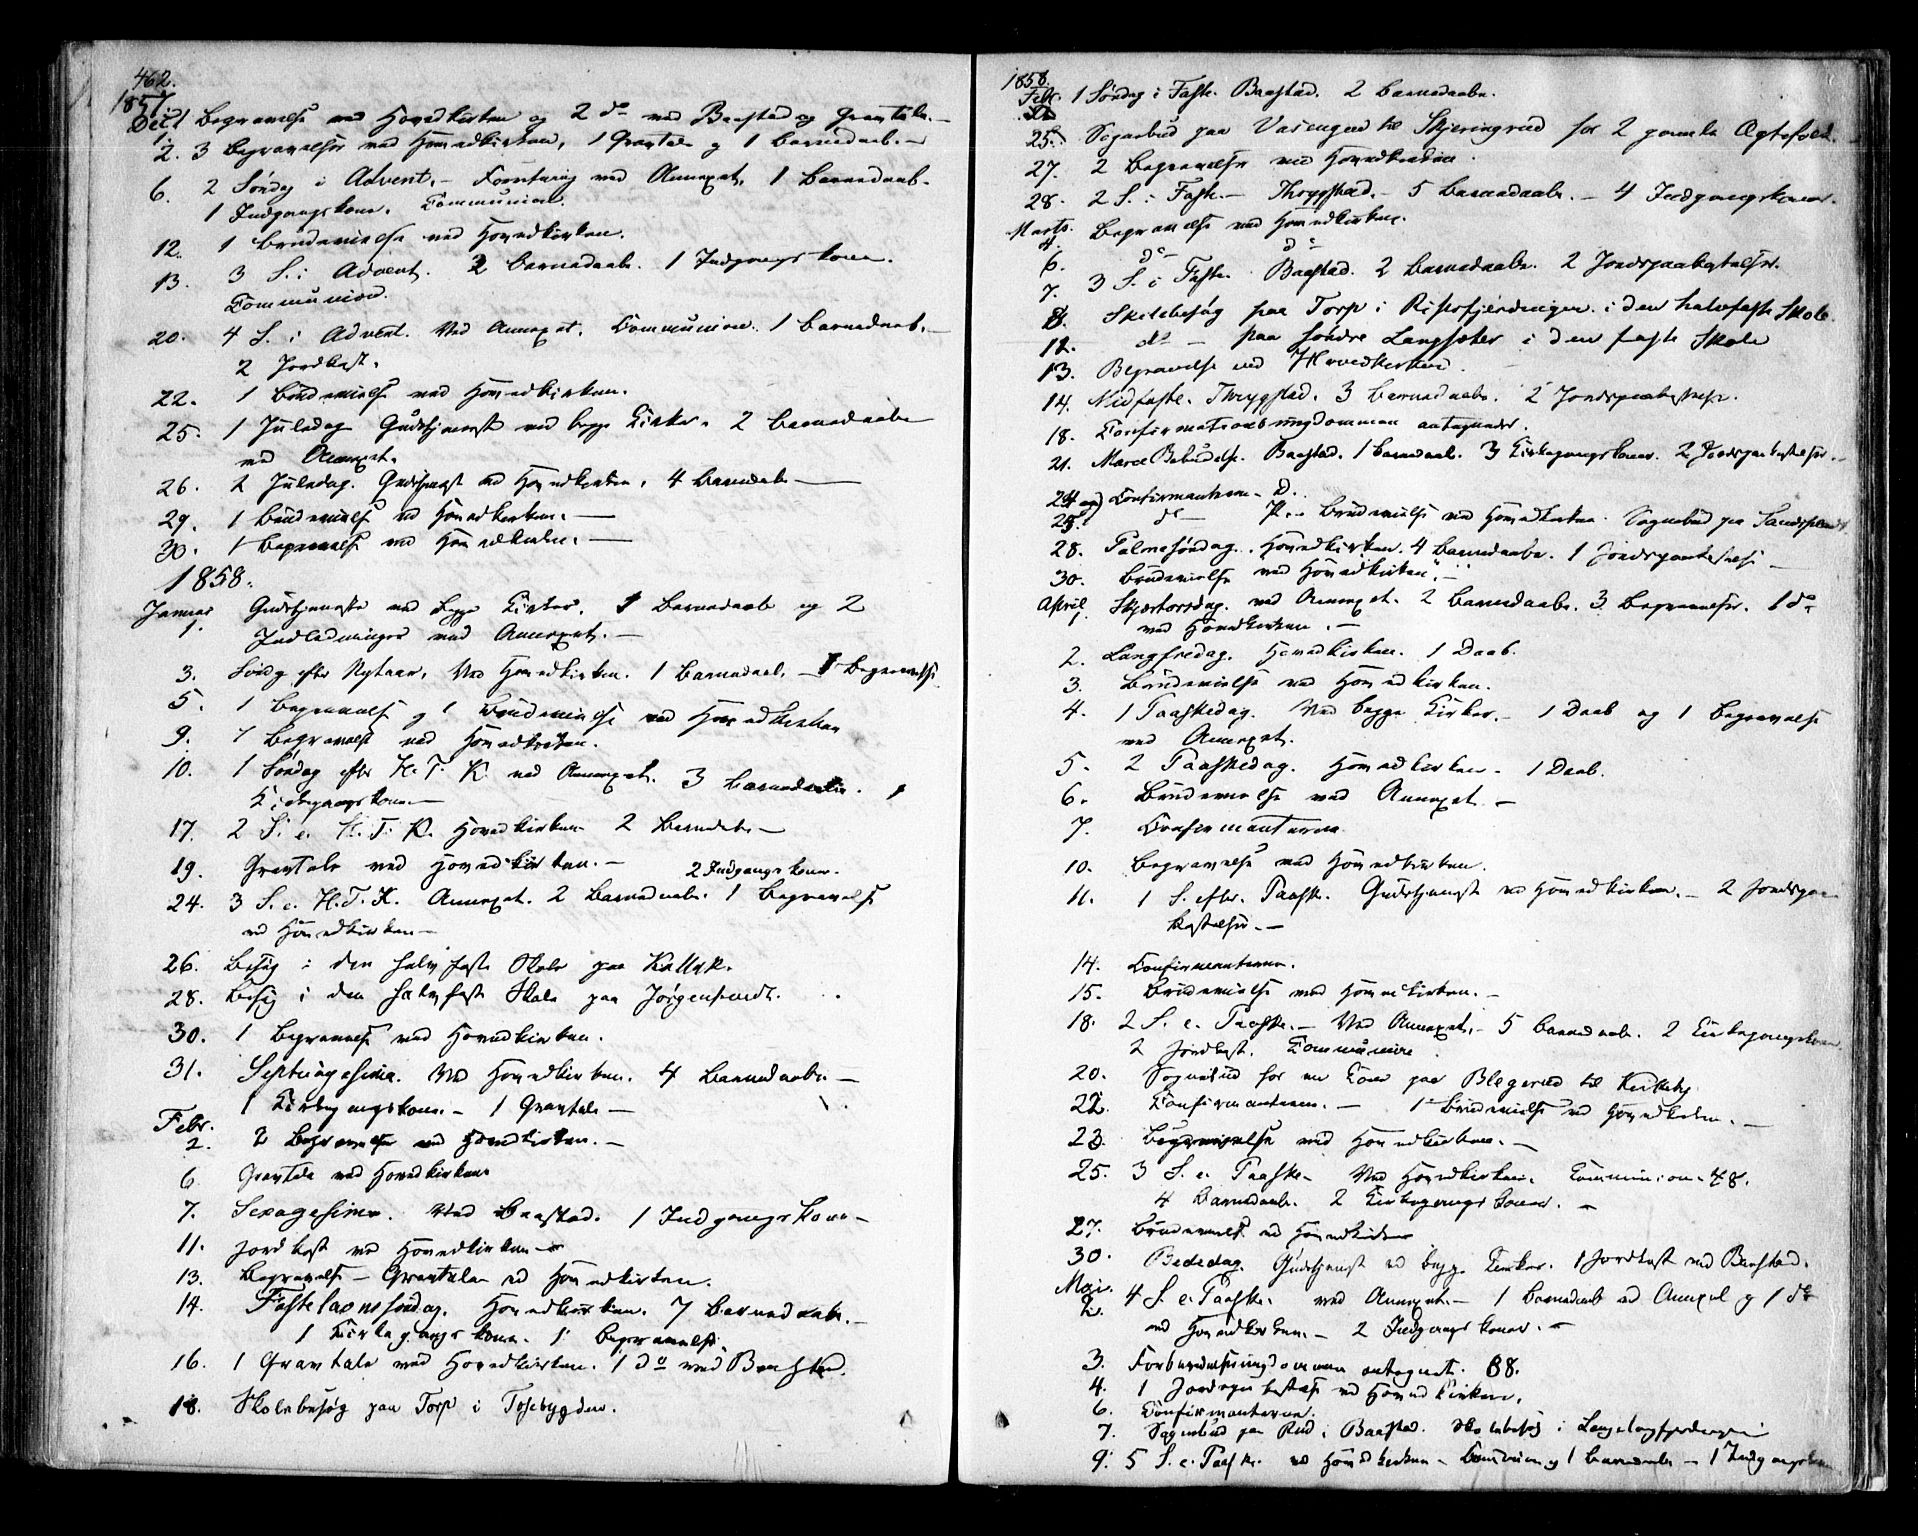 462.
1857
Decbr 1 Begravelse ved Hovedkirken og 2 do ved Baastad og Gravtale. —
2. 3 Begravelser ved Hovedkirken, 1 Gravtale og 1 Barnedaab. —
6. 2 Søndag i Advent. — Forretning ved Annexet. 1 Barnedaab.
1 Indgangskone. Communion.
12. 1 Brudevielse ved Hovedkirken.
13. 3 S. i Advent. 2 Barnedaab. 1 Indgangskone.
Communion.
20. 4 S. i Advent. Ved Annexet. Communion. 1 Barnedaab. —
2 Jordkast.
22. 1 Brudevielse ved Hovedkirken.
25. 1 Juledag Gudstjeneste ved begge Kirker. 2 Barnedaabe
ved Annexet.
26. 2 Juledag. Gudstjeneste ved Hovedkirken. 4 Barnedaabe —
29. 1 Brudevielse ved Hovedkirken. —
30. 1 Begravelse ved Hovedkirken. —
1858.
Januar Gudstjeneste ved begge Kirker. 1 Barnedaab og 2
1. Indledninger ved Annexet. —
3. Søndg efter Nytaar. Ved Hovedkirken. 1 Barnedaab. — 1 Begravelse
5. 1 Begravelse og 1 Brudevielse ved Hovedkirken
9. 1 Begravelse ved Hovedkirken.
10. 1 Søndag efter H. T. K. ved Annexet. 3 Barnedaabe. 1
Kirkegangskone —
17. 2 S. e. H. T. K. Hovedkirken 2 Barnedaabe —
19. Gravtale ved Hovedkirken. — 2 Indgangskoner.
24. 3 S. e. H. T. K. Annexet. 2 Barnedaabe. 1 Begravelse
ved Hovedkirken —
26. Besøg i den halvfaste Skole paa Kallak.
28. Besøg i den halvfaste Skole paa Jørgensrud.
30. 1 Begravelse ved Hovedkirken.
31. Septuagesima. Ved Hovedkirken. 4 Barnedaabe —
1 Kirkegangskone. — 1 Gravtale —
Febr.
2. 2 Begravelser ved Hovedkirken. —
6 Gravtale ved Hovedkirken
7. Sexagesima. Ved Baastad. 1 Indgangskone —
11. Jordkast ved Hovedkirken —
13. Begravelse — Gravtale ved Hovedkirken.
14. Fastelavnssøndag. Hovedkirken. 7 Barnedaabe. —
1 Kirkegangskone. 1 Begravelse.
16. 1 Gravtale ved Hovedkirken. 1 do ved Baastad.
18. Skolebesøg paa Torp i Tosebygden.
1858.
Febr.
21 1 Søndag i Faste. Baastad. 2 Barnedaabe.
25. Sognebud paa Vasengen til Skjeringrud for 2 gamle Ægtefolk.
27. 2 Begravelser ved Hovedkirken.
28. 2 S. i Faste. — Thrygstad. — 5 Barnedaabe. — 4 Indgangskoner.
Marts.
4. Begravelse ved Hovedkirken.
6. do — do
7. 3 S. i Faste. Baastad. 2 Barnedaabe. 2 Jordpaakastelser.
8. Skolebesøg paa Torp i Risefjerdingen i den halvfaste Skole.
12. do — paa søndre Langsæter i den faste Skole
13. Begravelse ved Hovedkirken.
14. Midfaste. Thrygstad. 3 Barnedaabe. 2 Jordpaakastelser.
18. Confirmationsungdommen antegnedes.
21. Mariæ Bebudelse. Baastad. 1 Barnedaab. 3 Kirkegangskoner. 2 Jordpaakastelser. —
24 og Confirmanterne. D.
25. do — P. — Brudevielse ved Hovedkirken. Sognebud paa
28. Palmesøndag. Hovedkirken. 4 Barnedaabe. 1 Jordpaakastelse —
30. Brudevielse ved Hovedkirken. —
April
1. Skjærtorsdag. ved Annexet. 2 Barnedaabe. 3 Begravelser. 1 do
ved Hovedkirken. —
2. Langfredag. Hovedkirken. 1 Daab.
3. Brudevielse ved Hovedkirken.
4. 1 Paaskedag. Ved begge Kirker. — 1 Daab og 1 Begravelse
ved Annexet.
5. 2 Paaskedag. Hovedkirken. 1 Daab.
6. Brudevielse ved Annexet. —
7. Confirmanterne.
10. Begravelse ved Hovedkirken.
11. 1 S. efter Paaske. Gudstjeneste ved Hovedkirken. — 2 Jordpaa
kastelser. —
14. Confirmanterne.
15. Brudevielse ved Hovedkirken. —
18. 2 S. e. Paaske. — Ved Annexet. — 5 Barnedaabe. 2 Kirkegangskoner.
2 Jordkast. Communion
20. Sognebud for en Kone paa Blegerud til
22. Confirmanterne. — 1 Brudevielse ved Hovedkirken. —
23. Begravelse ved Hovedkirken. —
25. 3 S. e. Paaske — Ved Hovedkirken. Communion. 48.
4 Barnedaabe. 2 Kirkegangskoner. —
27. Brudevielse ved Hovedkirken
30. Bededag. Gudstjeneste ved begge Kirker. 1 Jordkast ved Baastad.
Mai.
2. 4 S. e. Paaske. ved Annexet. — 1 Barnedaab ved Annexet og 1 do
ved Hovedkirken. — 2 Indgangskoner. —
3. Forberedelsesungdommen antegnet. 88.
4. 1 Jordpaakastelse ved Hovedkirken.
6. Confirmanterne.
7. Sognebud paa Rud i Baastad. Skolebesøg i
9. 5 S. e. Paaske. ved Hovedkirken — Communion og 1 Barnedaab — 1 Indgangskone